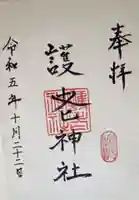 奉拝
護 神社
令和五年十月二十二日